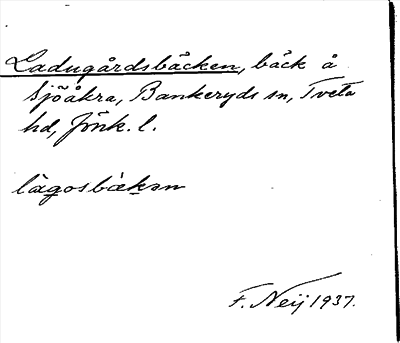 Ladugårdsbäcken, bäck å
Sjöåkra, Bankeryds sn, Tveta
hd, Jönk. l.
lägosbäkən
F. Neij 1937.